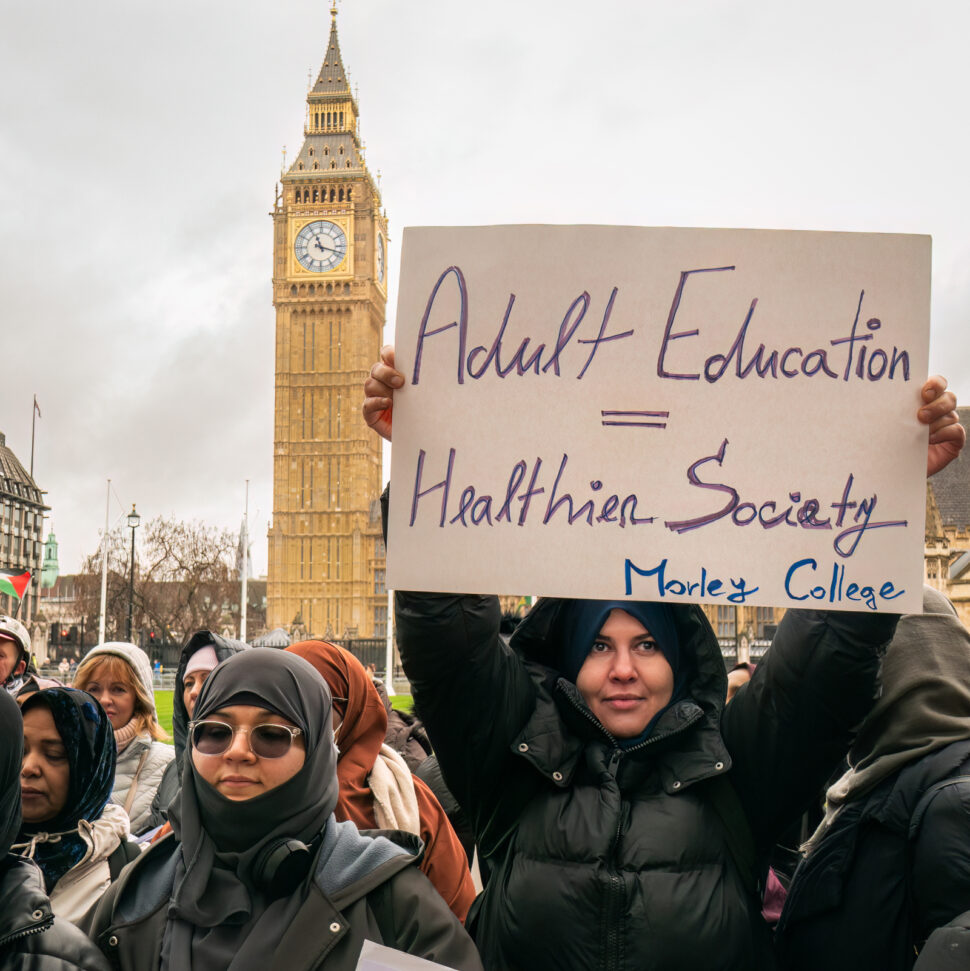 Adult Education
=
Healthier Society
Morley College